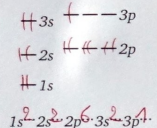 3s 3p
2s 2p
1s
1s² 2s² 2p⁶ 3s² 3p¹